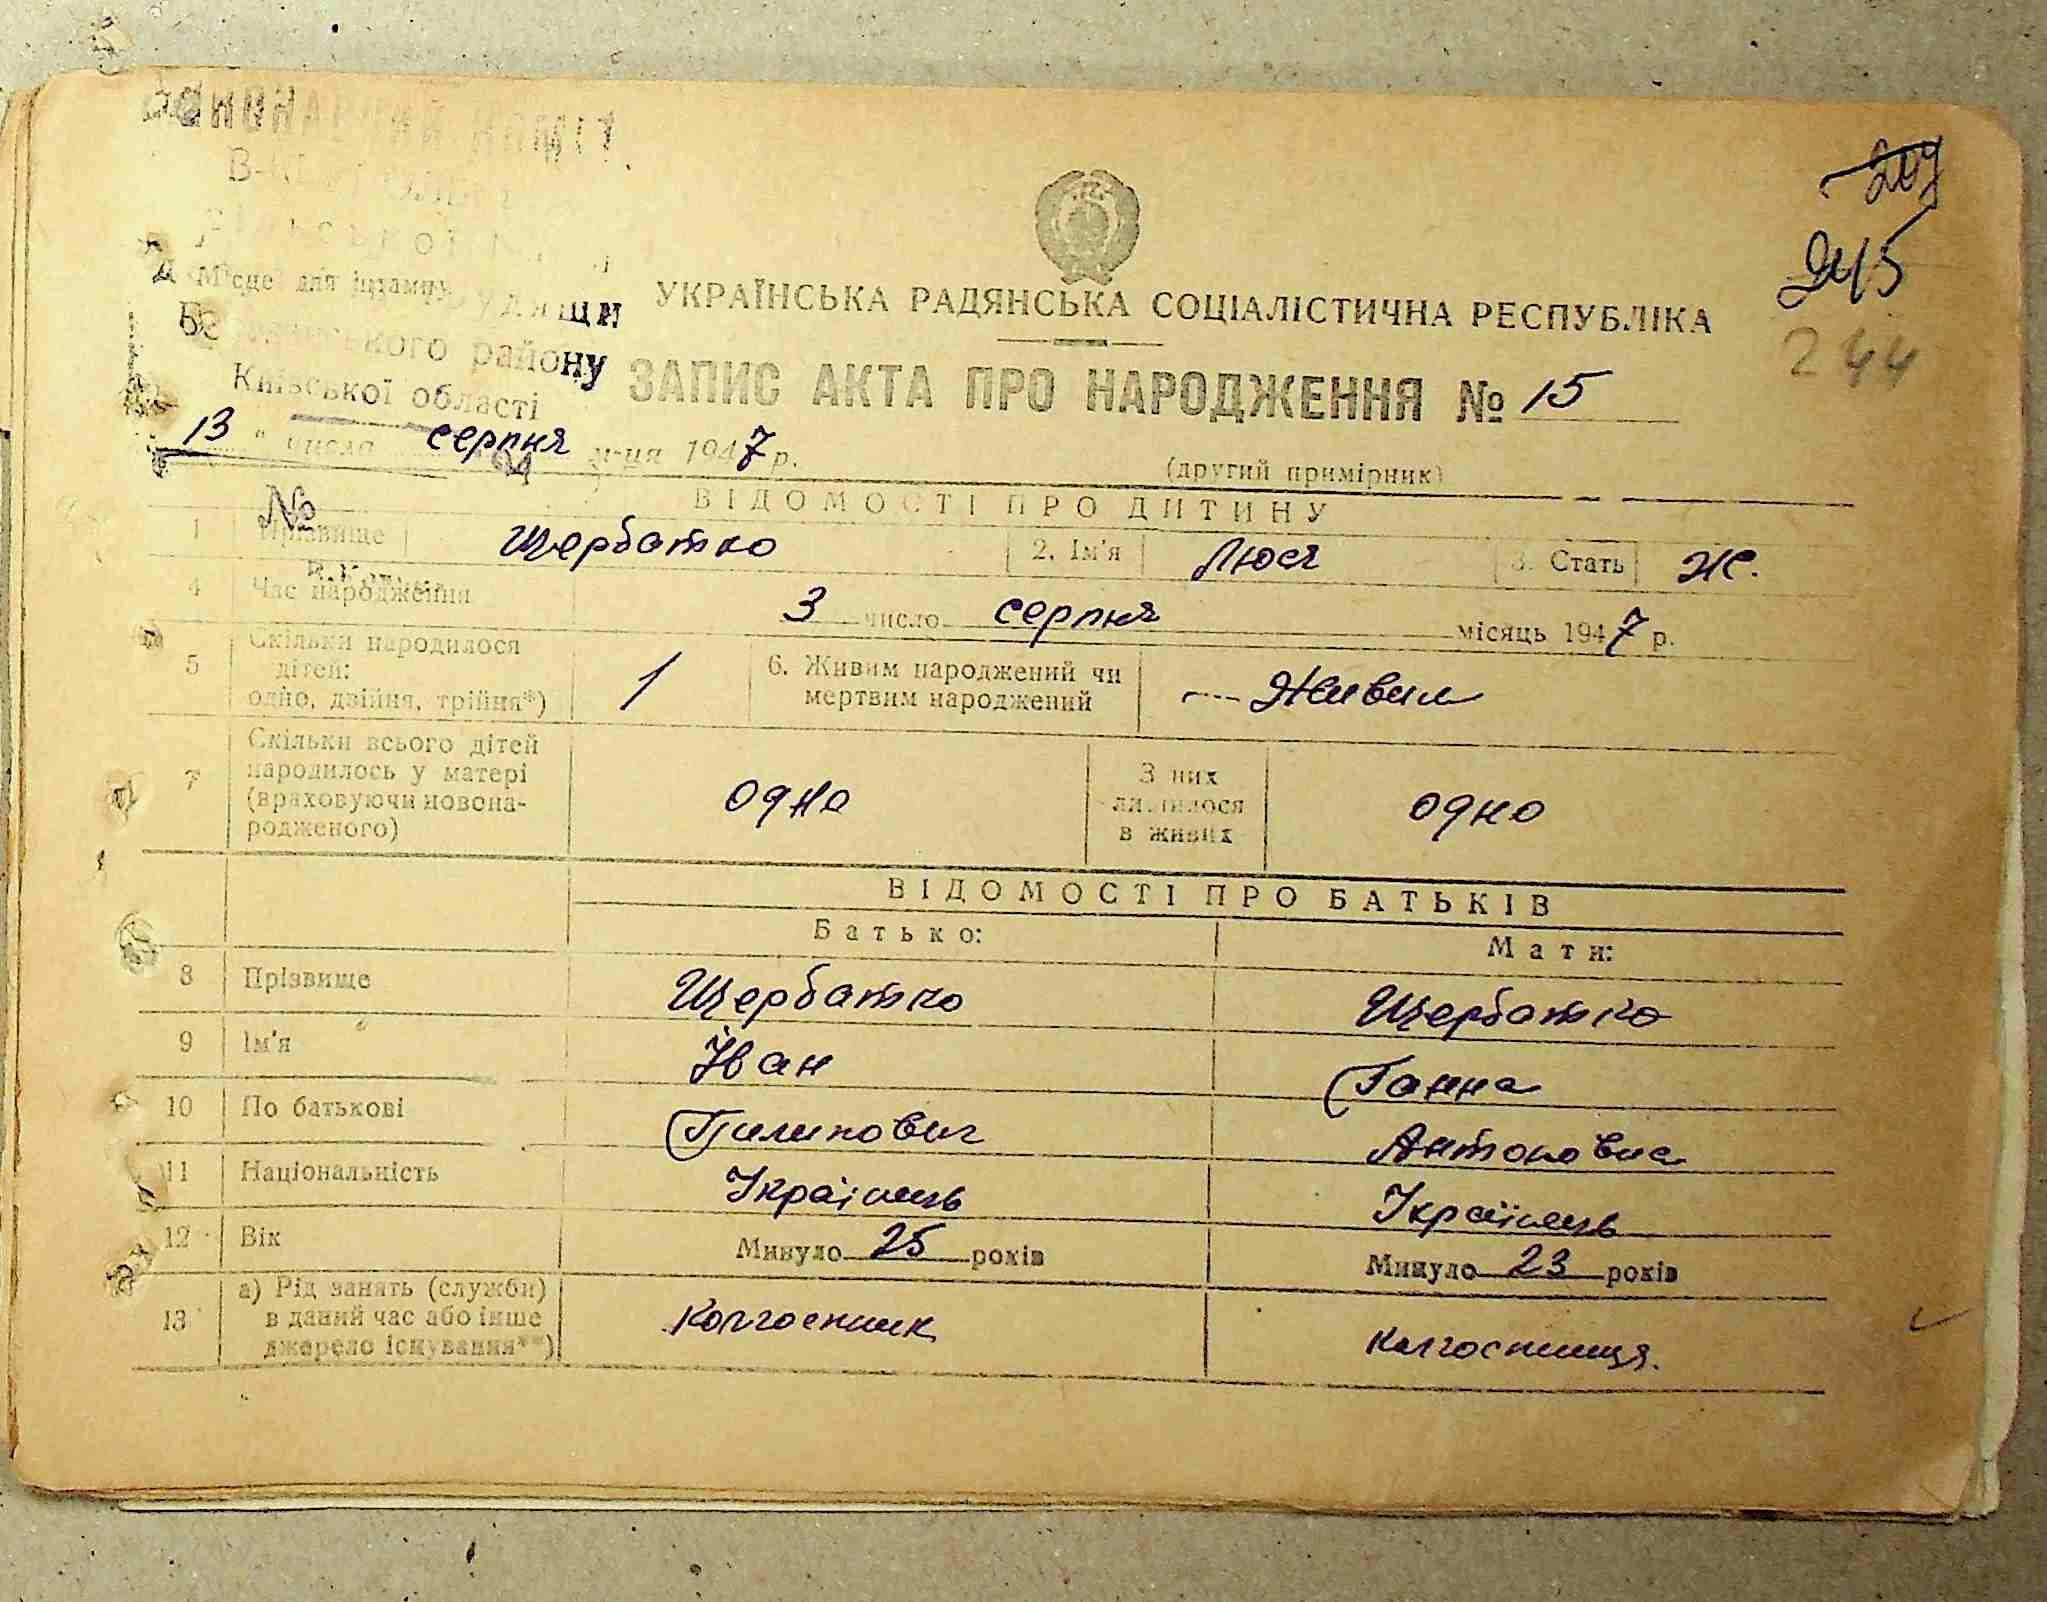 ВИКОНАВЧИЙ КОМІТ
Місце для штампу
району
Київської області
209
245
244
УКРАЇНСЬКА РАДЯНСЬКА СОЦІАЛІСТИЧНА РЕСПУБЛІКА
ЗАПИС АКТА ПРО НАРОДЖЕННЯ № 15
13 " числа серпня м-ця 1947 р.
(другий примірник)
№
ВІДОМОСТІ ПРО ДИТИНУ
1 Прізвище Щербатко 2. Ім'я Люся 3. Стать Ж.
4 Час народження 3 число серпня місяць 1947 р.
5 Скільки народилося дітей: одно, двійня, трійня*) 1 6. Живим народжений чи мертвим народжений Живим
7 Скільки всього дітей народилось у матері (враховуючи новонародженого) одна З них лишилося в живих одно
ВІДОМОСТІ ПРО БАТЬКІВ
Батько: Мати:
8 Прізвище Щербатко Щербатко
9 Ім'я Іван Ганна
10 По батькові Пилипович Антоновна
11 Національність Українець Українець
12 Вік Минуло 25 років Минуло 23 років
13 а) Рід занять (служби) в даний час або інше джерело існування**) Колгоспник Колгоспниця.